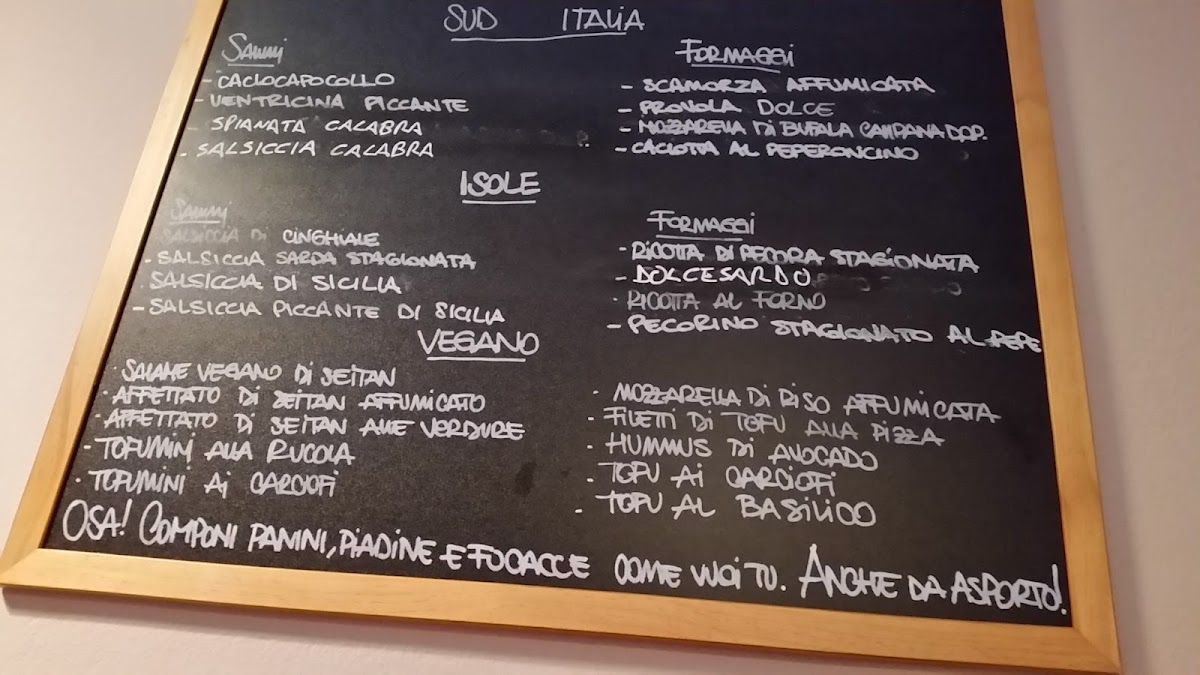 SUD ITALIA
SALUMI
- CACIOCAPOCOLLO
- VENTRICINA PICCANTE
- SPIANATA CALABRA
- SALSICCIA CALABRA
FORMAGGI
- SCAMORZA AFFUMICATA
- PROVOLA DOLCE
- MOZZARELLA DI BUFALA CAMPANA D.O.P.
- CACIOTTA AL PEPERONCINO
ISOLE
SALUMI
SALSICCIA DI CINGHIALE
- SALSICCIA SARDA STAGIONATA
SALSICCIA DI SICILIA
- SALSICCIA PICCANTE DI SICILIA
FORMAGGI
- RICOTTA DI PECORA STAGIONATA
- DOLCESARDO
- RICOTTA AL FORNO
- PECORINO STAGIONATO AL PEPE
VEGANO
- SALAME VEGANO DI SEITAN
- AFFETTATO DI SEITAN AFFUMICATO
- AFFETTATO DI SEITAN ALLE VERDURE
- TOFUMINI ALLA RUCOLA
- TOFUMINI AI CARCIOFI
- MOZZARELLA DI RISO AFFUMICATA
- FILETI DI TOFU ALLA PIZZA
- HUMMUS DI AVOCADO
- TOFU AI CARCIOFI
- TOFU AL BASILICO
OSA! COMPONI PANINI, PIADINE E FOCACCE COME VUOI TU. ANCHE DA ASPORTO!